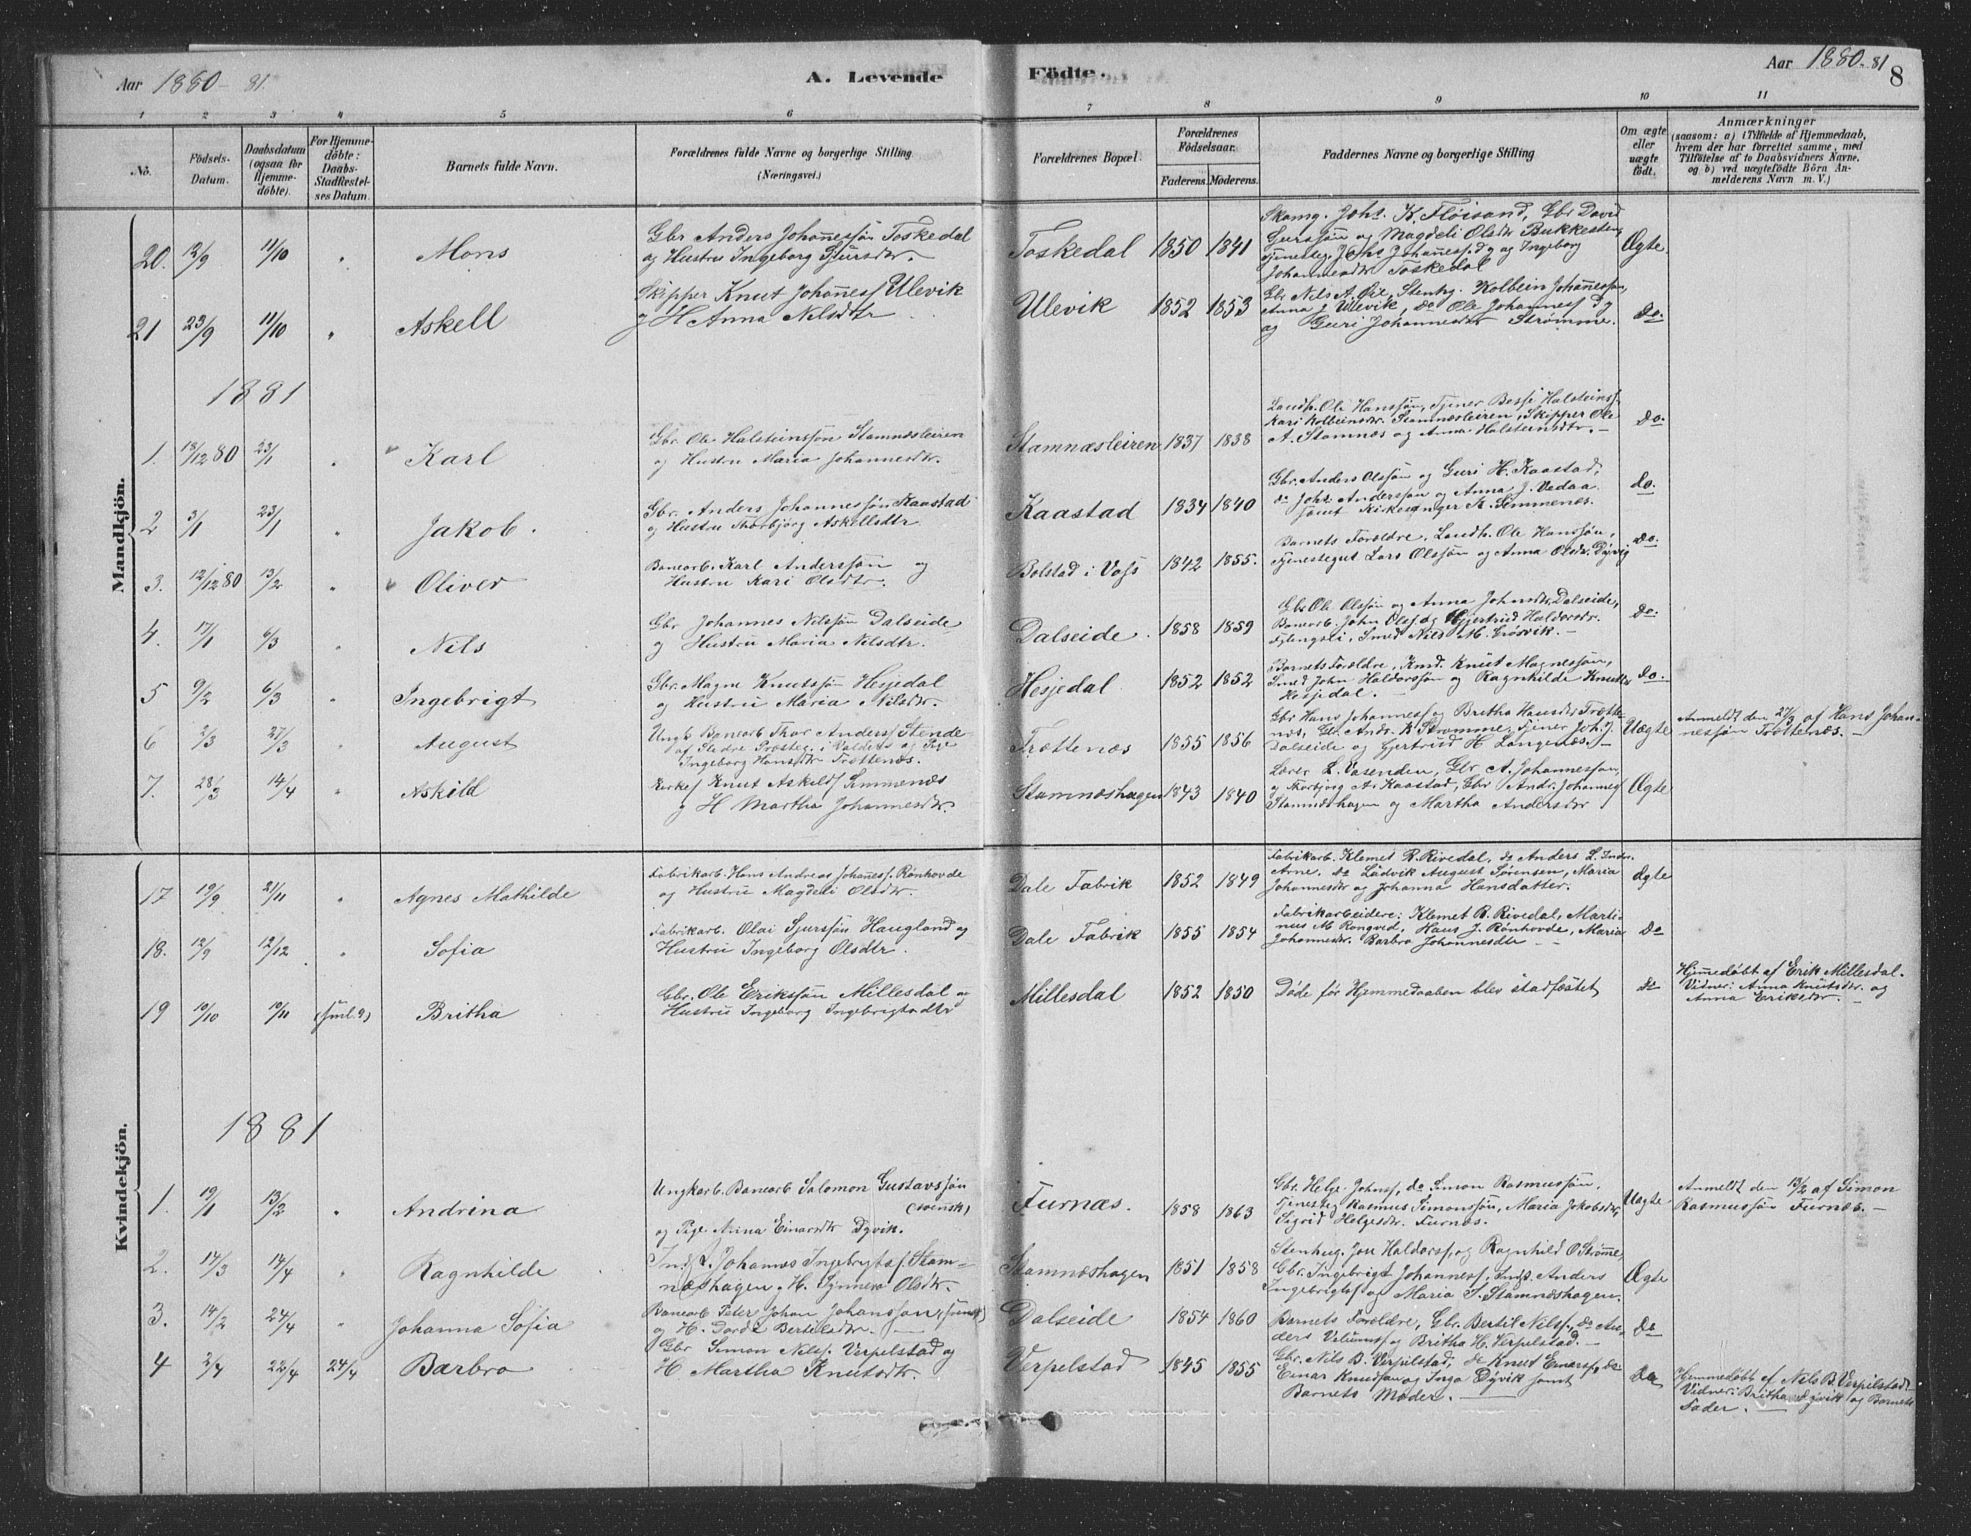 Aar 1880-81. A. Levende Födte. Aar 1880-81 8
1 2 3 4 5 6 7 8 9 10 11
No. Födsels-Datum. Daabsdatum (ogsaa for Hjemmedöbte). For Hjemmedöbte: Daabs-Stadfæstelses Datum. Barnets fulde Navn. Forældrenes fulde Navne og borgerlige Stilling (Næringsvei.) Forældrenes Bopæl. Forældrenes Födselsaar. Faderens. Moderens. Faddernes Navne og borgerlige Stilling Om ægte eller uægte födt. Anmærkninger (saasom: a) i Tilfælde af Hjemmedaab, hvem der har forrettet samme, med Tilföielse af to Daabsvidners Navne, og b) ved uægtefödte Börn Anmelderens Navn m. V.)
Mandkjön.
20. 12/9 11/10 " Mons
Gbr Anders Johannessøn Toskedal
og Hustru Ingeborg Sjursdtr.
Toskedal 1850 1841
Skomg. Johs. K. Fløisand, Gbr David
Sjurssøn og Magdeli Olsdtr Bukkesten
Tjenesteg. Johs Johaness. dg og Ingeborg
Johannesdtr Toskedal
Ægte
21 23/9 11/10 " Askell
Skipper Knut Johaness Ulevik
og H Anna Nilsdtr
Ulevik 1852 1853
Gbr Nils A. Øie, Stenhg. Kolbein Johannesson,
Anna J Ulevik, do Ole Johanness dg
og Guri Johannesdtr Strømme.
do.
1881
1. 18/12 80 23/1 " Karl
Gbr. Ole Halsteinssøn Stamnæsleiren
og Hustru Maria Johannesdtr.
Stamnæsleiren 1837 1838
Landh. Ole Hanssøn, Tjener Bosse Halsteinss.
Kari Kolbeinsdtr. Stamnæsleiren, Skipper Ole
A. Stamnæs og Anna Halsteinsdtr.
do.
2 3/1 23/1 " Jakob.
Gbr. Anders Johannessøn Kaastad
og Hustru Thorbjørg Askellsdtr
Kaastad 1834 1840
Gbr. Anders Olssøn og Guri H. Kaastad,
do Johs. Anderssøn og Anna J. Vedaa
samt Kirkesanger K. Simmenæs.
do.
3. 12/12 80 13/2 " Oliver
Banearb. Karl Anderssøn og
Hustru Kari Olsdtr.
Bolstad i Voss 1842 1855.
Barnets Forældre, Landh. Ole Hanssøn,
Tjenestegut Lars Olssøn og Anna Olsdr. Dyvig
do.
4. 17/1 6/3 " Nils
Gbr Johannes Nilssøn Dalseide
og Hustru Maria Nilsdtr.
Dalseide. 1858 1859
Gbr Ole Olssøn og Anna Johnsdtr. Dalseide,
Banearb. John Olss. dg Gjertrud Haldorsdtr.
Fylengsli, Smed Nils M. Grøsvik.
do.
5 9/2 6/3 " Ingebrigt
Gbr. Magne Knutssøn Hesjedal
og Hustru Maria Nilsdtr.
Hesjedal. 1852 1852
Barnets Forældre, Knud Magnessøn,
Smed John Haldorssøn og Ragnhilde Knutsdtr
Hesjedal.
do.
6 2/3 27/3 " August
Ungk Banearb Thor Anderss Stende
af Slidre Præsteg. i Valders og Pige
Ingeborg Hansdtr Trættenæs.
Trættenæs 1855 1856
Gbr Hans Johanness og Britha Hansdtr Trætte-
næs, Gr. Andr. K. Strømme, Tjener Joh. J.
Dalseide og Gjertrud H Langenæs.
Uægte
Anmeldt den 27/3 af Hans Johan-
nessøn Trættenæs.
7. 28/3 14/4 " Askild
Kirkes Knut Askilds Simmenæs
og H Martha Johannesdtr.
Stamnæshagen 1843 1840
Lærer L. Vasenden, Gbr A. Johannessøn,
og Thorbjørg A. Kaastad, Gbr Andr. Johanness
Stamnæshagen og Martha Andersdtr
Ægte
Kvindekjön.
17 19/9 21/11 " Agnes Mathilde
Fabrikarb. Hans Andreas Johaness. Rønhovde
og Hustru Magdeli Olsdtr.
Dale Fabrik 1852 1849
Fabrikarb. Klemet R. Rivedal, do Anders L. Indre
Arne, do Ludvik August Sørensen, Maria
Johannesdtr og Johanna Hansdatter.
Ægte
18. 12/9 12/12 " Sofia
Fabrikarb. Olai Sjurssøn Haugland og
Hustru Ingeborg Olsdtr.
Dale Fabrik 1855 1854
Fabrikarbeidere: Klemet R. Rivedal, Marti-
nus M Rongved, Hans J. Rønhovde, Maria
Johannesdtr. Barbro Johannesdtr
do
19 10/10 19/11 Britha
Gbr. Ole Erikssøn Millesdal og
Hustru Ingeborg Ingebrigtsdtr
Millesdal 1852 1850
Døde før Hjemmedaaben blev stadfæstet
do
Hjemedøbt af Erik Millesdal.
Vidner: Anna Knutsdtr. og
Anna Eriksdtr.
1881
1. 19/1 13/2 " Andrina
Ungkarl. Banearb Salomon Gustavssøn
(svensk)
og Pige Anna Einarsdtr Dyvik.
Furnæs. 1858 1863
Gbr. Helje Johnss, do Simon Rasmussøn,
Tjenesteg Rasmus Simonssøn, Maria Jakobsdtr,
Sigrid Helgesdtr. Furnæs.
Uægte
Anmeldt den 13/2 af Simon
Rasmussøn Furnæs.
2. 17/3 14/4 " Ragnhilde
Inds. Johannes Ingebrigts. Stam-
næshagen og H. Synneva Olsdtr.
Stamnæshagen 1851 1858
Stenhug. Jon Haldorss. og Ragnhild O Strømme,
Gbr. Ingebrigt Johanness, Inds. Anders
Ingebrigts og Maria S. Stamnæshagen.
Ægte
3. 14/2 24/4 " Johanna Sofia
Banearb Peter Johan Johanssøn, (svensk)
og H. Dordi Bertilsdtr.
Dalseide 1854 1860
Barnets Forældre, Gbr. Bertil Nilss., do An-
ders Vilumss og Britha H. Verpelstad.
do
4 2/4 22/4 24/4 Barbro
Gbr Simon Nilss. Verpelstad og
H Martha Knutsdtr.
Verpelstad 1845 1855
Gbr. Nils B. Verpelstad, do Knut Einarss, do
Einar Knudsøn og Inga Dyvik samt
Barnets Moder.
do
Hjemmedøbt af Nils B. Verpelstad
Vidner: Britha Dyvik og Barnets
Fader.